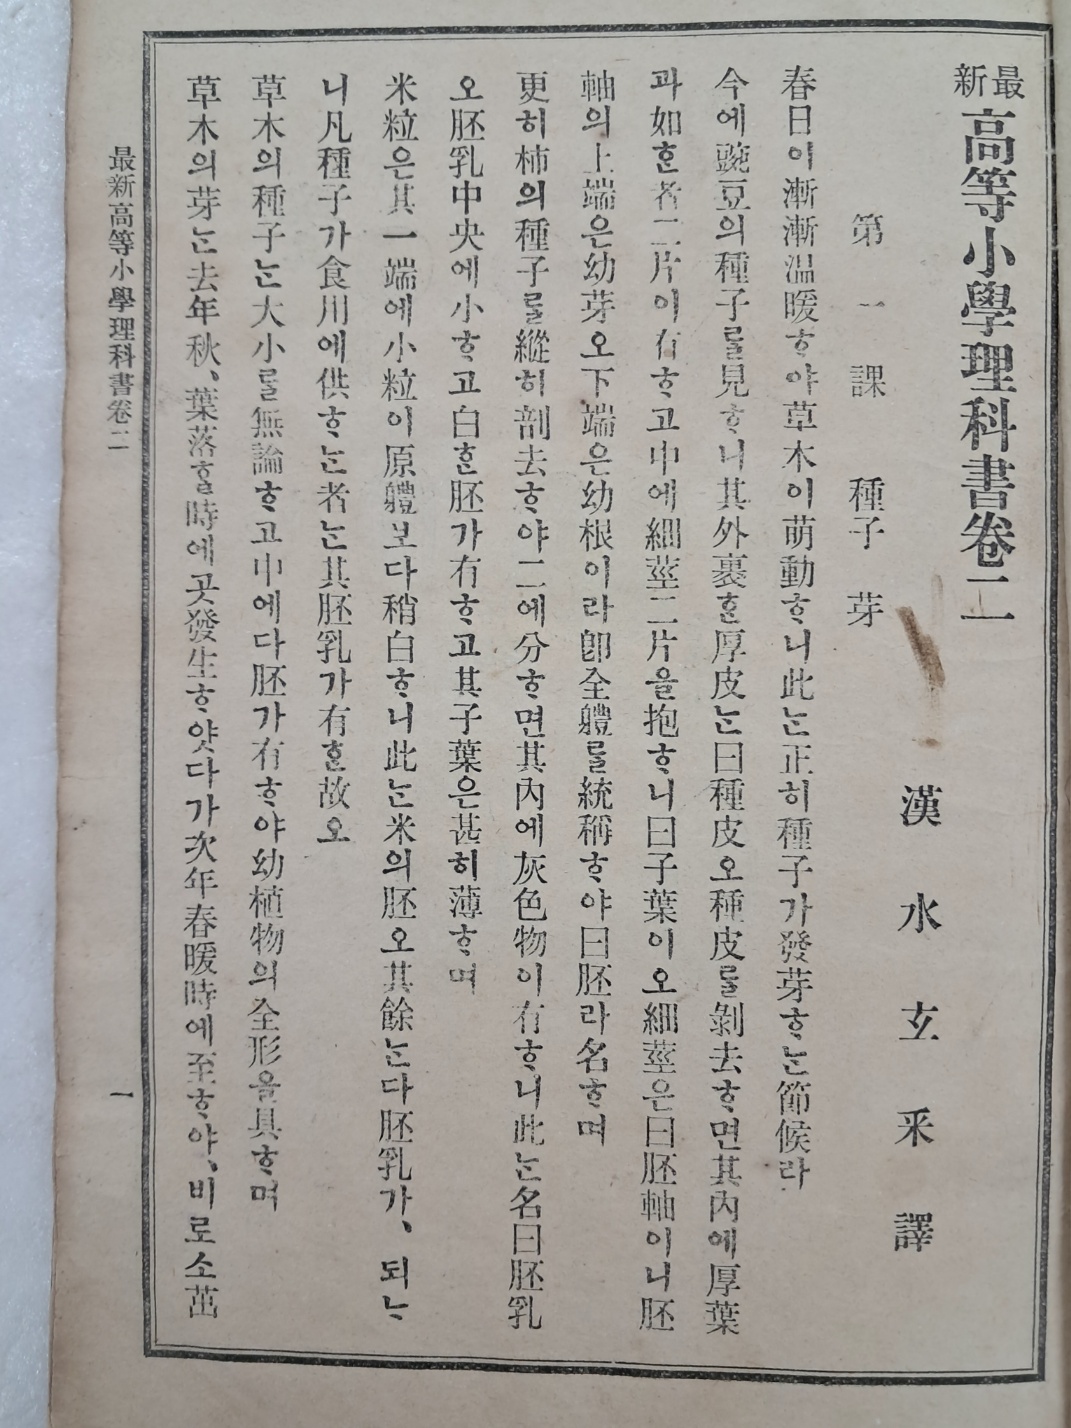 最新高等小學理科書卷二
漢水玄采譯
第一課 種子 芽
春日이漸漸温暖ᄒᆞ야草木이萌動ᄒᆞ니此ᄂᆞᆫ正히種子가發芽ᄒᆞᄂᆞᆫ節候라
今에豌豆의種子ᄅᆞᆯ見ᄒᆞ니其外裹ᄒᆞᆫ厚皮ᄂᆞᆫ曰種皮오種皮ᄅᆞᆯ剝去ᄒᆞ면其內에厚葉
과如ᄒᆞᆫ者二片이有ᄒᆞ고中에細莖二片을抱ᄒᆞ니曰子葉이오細莖은曰胚軸이니胚
軸의上端은幼芽오下端은幼根이라卽全軆ᄅᆞᆯ統稱ᄒᆞ야曰胚라名ᄒᆞ며
更히柿의種子ᄅᆞᆯ縱히剖去ᄒᆞ야二에分ᄒᆞ면其內에灰色物이有ᄒᆞ니此ᄂᆞᆫ名曰胚乳
오胚乳中央에小ᄒᆞ고白ᄒᆞᆫ胚가有ᄒᆞ고其子葉은甚히薄ᄒᆞ며
米粒은其一端에小粒이原軆보다稍白ᄒᆞ니此ᄂᆞᆫ米의胚오其餘ᄂᆞᆫ다胚乳가、되ᄂᆞ
니凡種子가食用에供ᄒᆞᄂᆞᆫ者ᄂᆞᆫ其胚乳가有ᄒᆞᆫ故오
草木의種子ᄂᆞᆫ大小ᄅᆞᆯ無論ᄒᆞ고中에다胚가有ᄒᆞ야幼植物의全形을具ᄒᆞ며
草木의芽ᄂᆞᆫ去年秋、葉落ᄒᆞᆯ時에곳發生ᄒᆞ얏다가次年春暖時에至ᄒᆞ야、비로소茁
最新高等小學理科書卷二
一